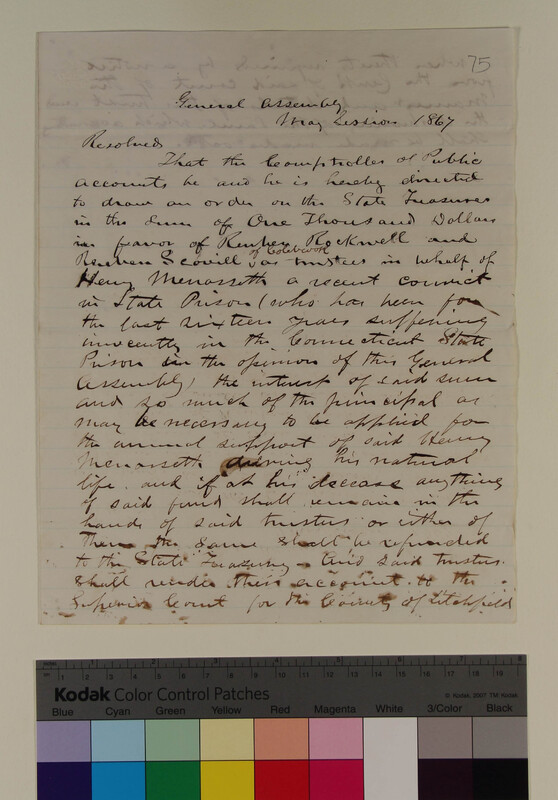 75
General Assembly
May Session 1867
Resolved
That the Comptroller of Public
accounts be and he is hereby directed
to draw an order on the State Treasurer
in the sum of One Thousand Dollars
in favor of Reuben Rockwell and
of Colebrook
Reuben Scovill as trustees in behalf of
Henry Menasseth a recent convict
in State Prison (who has been for
the last sixteen years suffering
innocently in the Connecticut State
Prison in the opinion of this General
Assembly) the interest of said sum
and so much of the principal as
may be necessary to be applied for
the annual support of said Henry
Menasseth during his natural
life and if at his decease anything
of said fund shall remain in the
hands of said trustees or either of
them the same shall be refunded
to the State Treasury. And said trustees
shall render their account to the
Superior Court for the County of Litchfield
Kodak Color Control Patches
© Kodak, 2007 TM: Kodak
Blue Cyan Green Yellow Red Magenta White 3/Color Black